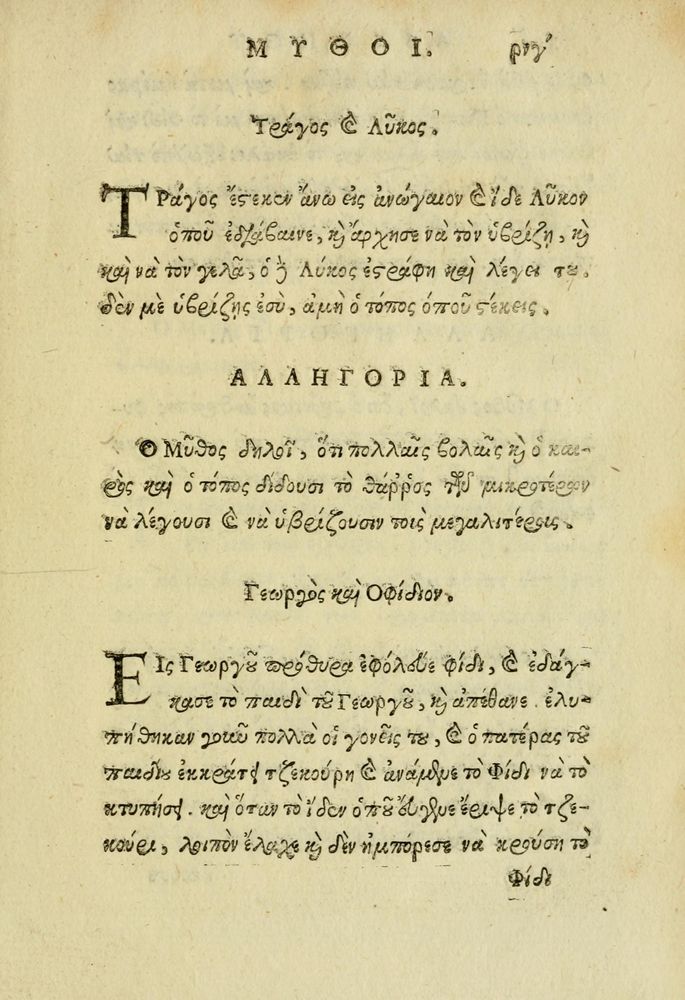 ΜΥΘΟΙ. ριγ΄
Τράγος καὶ Λύκος.
ΤΡάγος ἔστεκεν ἄνω εἰς ἀνώγαιον καὶ ἴδε Λῦκον
ὁποῦ ἐδιάβαινε, κὶ ἄρχησε νὰ τὸν ὑβρίζῃ, κὶ
καὶ νὰ τὸν γελᾶ, ὁ δὲ Λύκος ἐστράφη καὶ λέγει του,
δὲν μὲ ὑβρίζῃς ἐσὺ, ἀμὴ ὁ τόπος ὁποῦ στέκεις.
ΑΛΛΗΓΟΡΙΑ.
Ὁ Μῦθος δηλοῖ, ὅτι πολλαῖς βολαῖς κὶ ὁ και-
ρὸς καὶ ὁ τόπος δίδουσι τὸ θάῤῥος τῶν μικροτέρων
νὰ λέγουσι καὶ νὰ ὑβρίζουσιν τοις μεγαλιτέροις.
Γεωργὸς καὶ Οφίδιον.
ΕΙς Γεωργοῦ πρόθυρα ἐφόλευε φίδι, καὶ ἐδάγ-
κασε τὸ παιδὶ τοῦ Γεωργοῦ, κὶ ἀπέθανε. ἐλυ-
πήθηκαν λοιποῦ πολλὰ οἱ γονεῖς του, καὶ ὁ πατέρας τοῦ
παιδίου ἐκκράτει τζεκούρη καὶ ἀνάμενε τὸ Φίδι νὰ τὸ
κτυπήσει. καὶ ὅταν τὸ ἴδεν ὁποῦ εὔγενε ἔριψε τὸ τζε-
κούρι, λοιπὸν ἔλαχε κὶ δὲν ἠμπόρεσε νὰ κρούσῃ τὸ
Φίδι